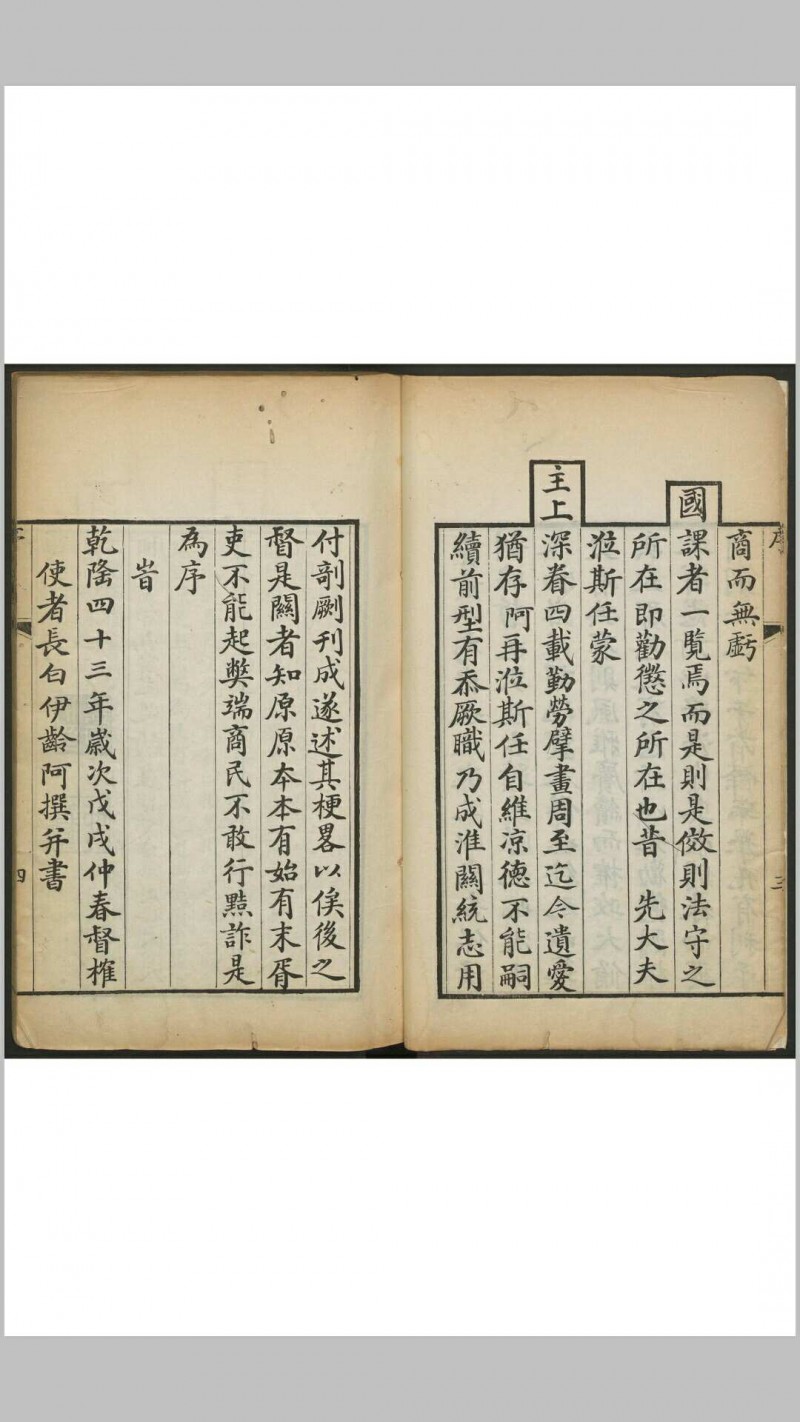 商而無虧
國課者一覽焉而是則是傚則法守之
所在即勸懲之所在也昔　先大夫
涖斯任蒙
主上深眷四載勤勞擘畫周至迄今遺愛
猶存　阿再涖斯任自維凉德不能嗣
續前型有忝厥職乃成淮關統志用
付剞劂刊成遂述其梗畧以俟後之
督是關者知原原本本有始有末胥
吏不能起獘端商民不敢行黠詐是
為序
旹
乾隆四十三年歲次戊戌仲春督榷
使者長白伊齡阿撰并書
四